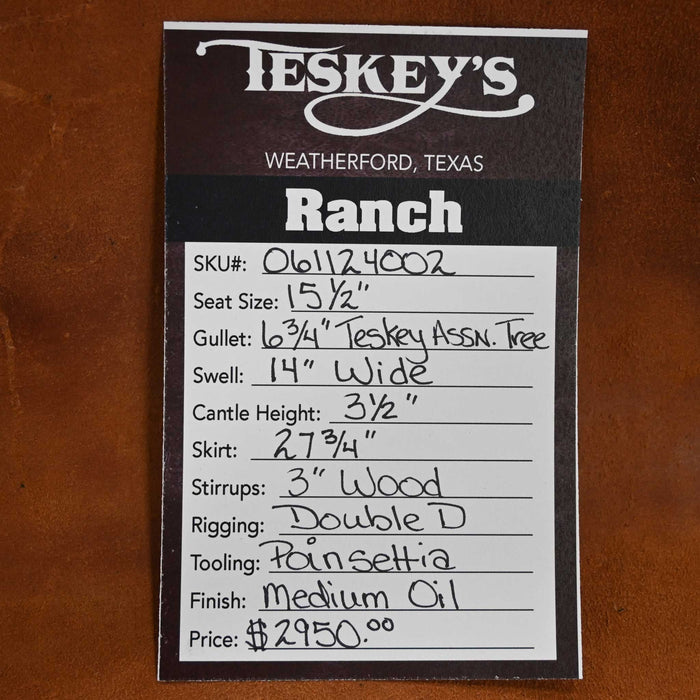 TESKEY'S
WEATHERFORD, TEXAS
Ranch
SKU#: 061124002
Seat Size: 15 1/2"
Gullet: 6 3/4" Teskey Assn. Tree
Swell: 14" Wide
Cantle Height: 3 1/2"
Skirt: 27 3/4"
Stirrups: 3" Wood
Rigging: Double D
Tooling: Poinsettia
Finish: Medium Oil
Price: $2950.00